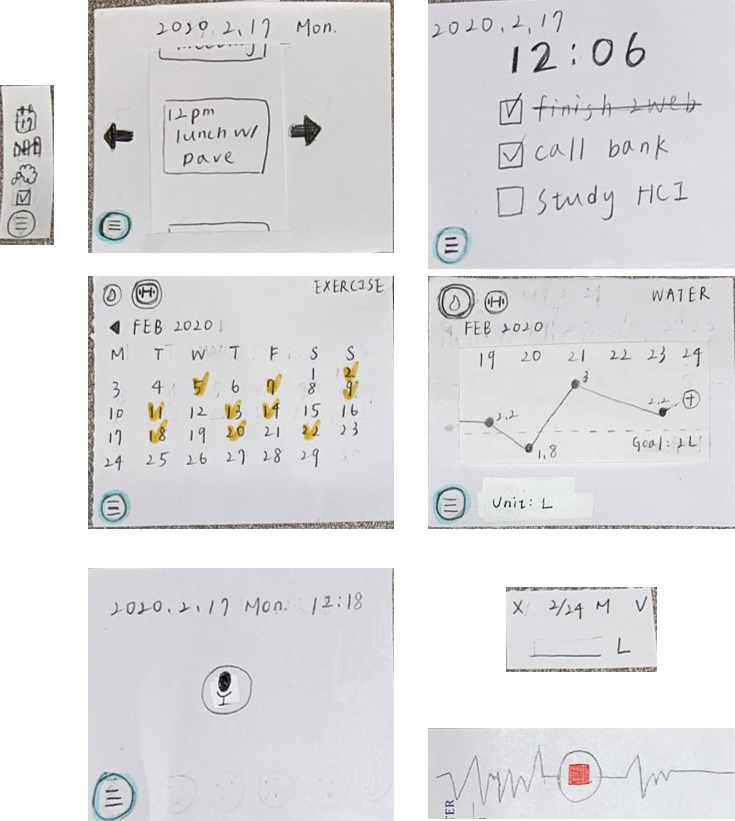 17
2020.2.17 Mon.
meeting
12pm
lunch w/
Dave
2020.2.17
12:06
finish 2web
call bank
Study HCI
EXERCISE
FEB 2020
M T W T F S S
1 2
3 4 5 6 7 8 9
10 11 12 13 14 15 16
17 18 19 20 21 22 23
24 25 26 27 28 29
WATER
FEB 2020
19 20 21 22 23 24
3
2.2
2.2
1.8
Goal: 2L
Unit: L
2020.2.17 Mon. 12:18
X 2/24 M V
L
TER